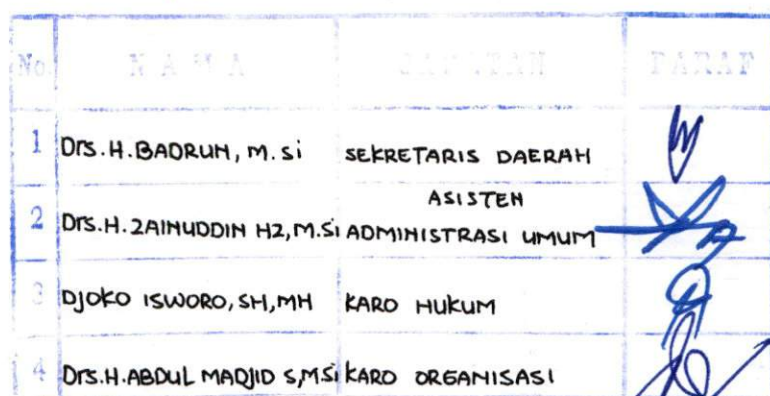 No NAMA JABATAN PARAF
1 Drs.H.BADRUN, M.Si SEKRETARIS DAERAH
ASISTEN
2 Drs.H.ZAINUDDIN HZ,M.Si ADMINISTRASI UMUM
3 DJOKO ISWORO,SH,MH KARO HUKUM
4 Drs.H.ABDUL MADJID S,M.Si KARO ORGANISASI